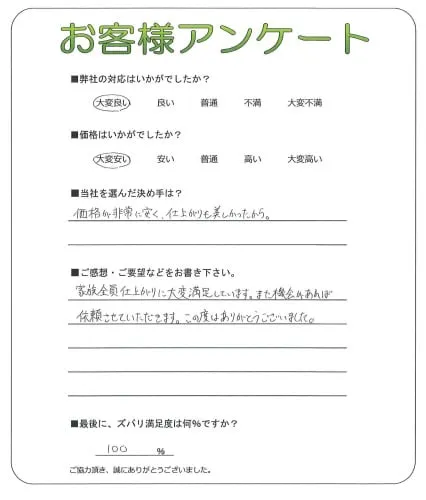 お客様アンケート
■弊社の対応はいかがでしたか？
大変良い 良い 普通 不満 大変不満
■価格はいかがでしたか？
大変安い 安い 普通 高い 大変高い
■当社を選んだ決め手は？
価格が非常に安く、仕上がりも美しかったから。
■ご感想・ご要望などをお書き下さい。
家族全員仕上がりに大変満足しています。また機会があれば
依頼させていただきます。この度はありがとうございました。
■最後に、ズバリ満足度は何％ですか？
100 ％
ご協力頂き、誠にありがとうございました。